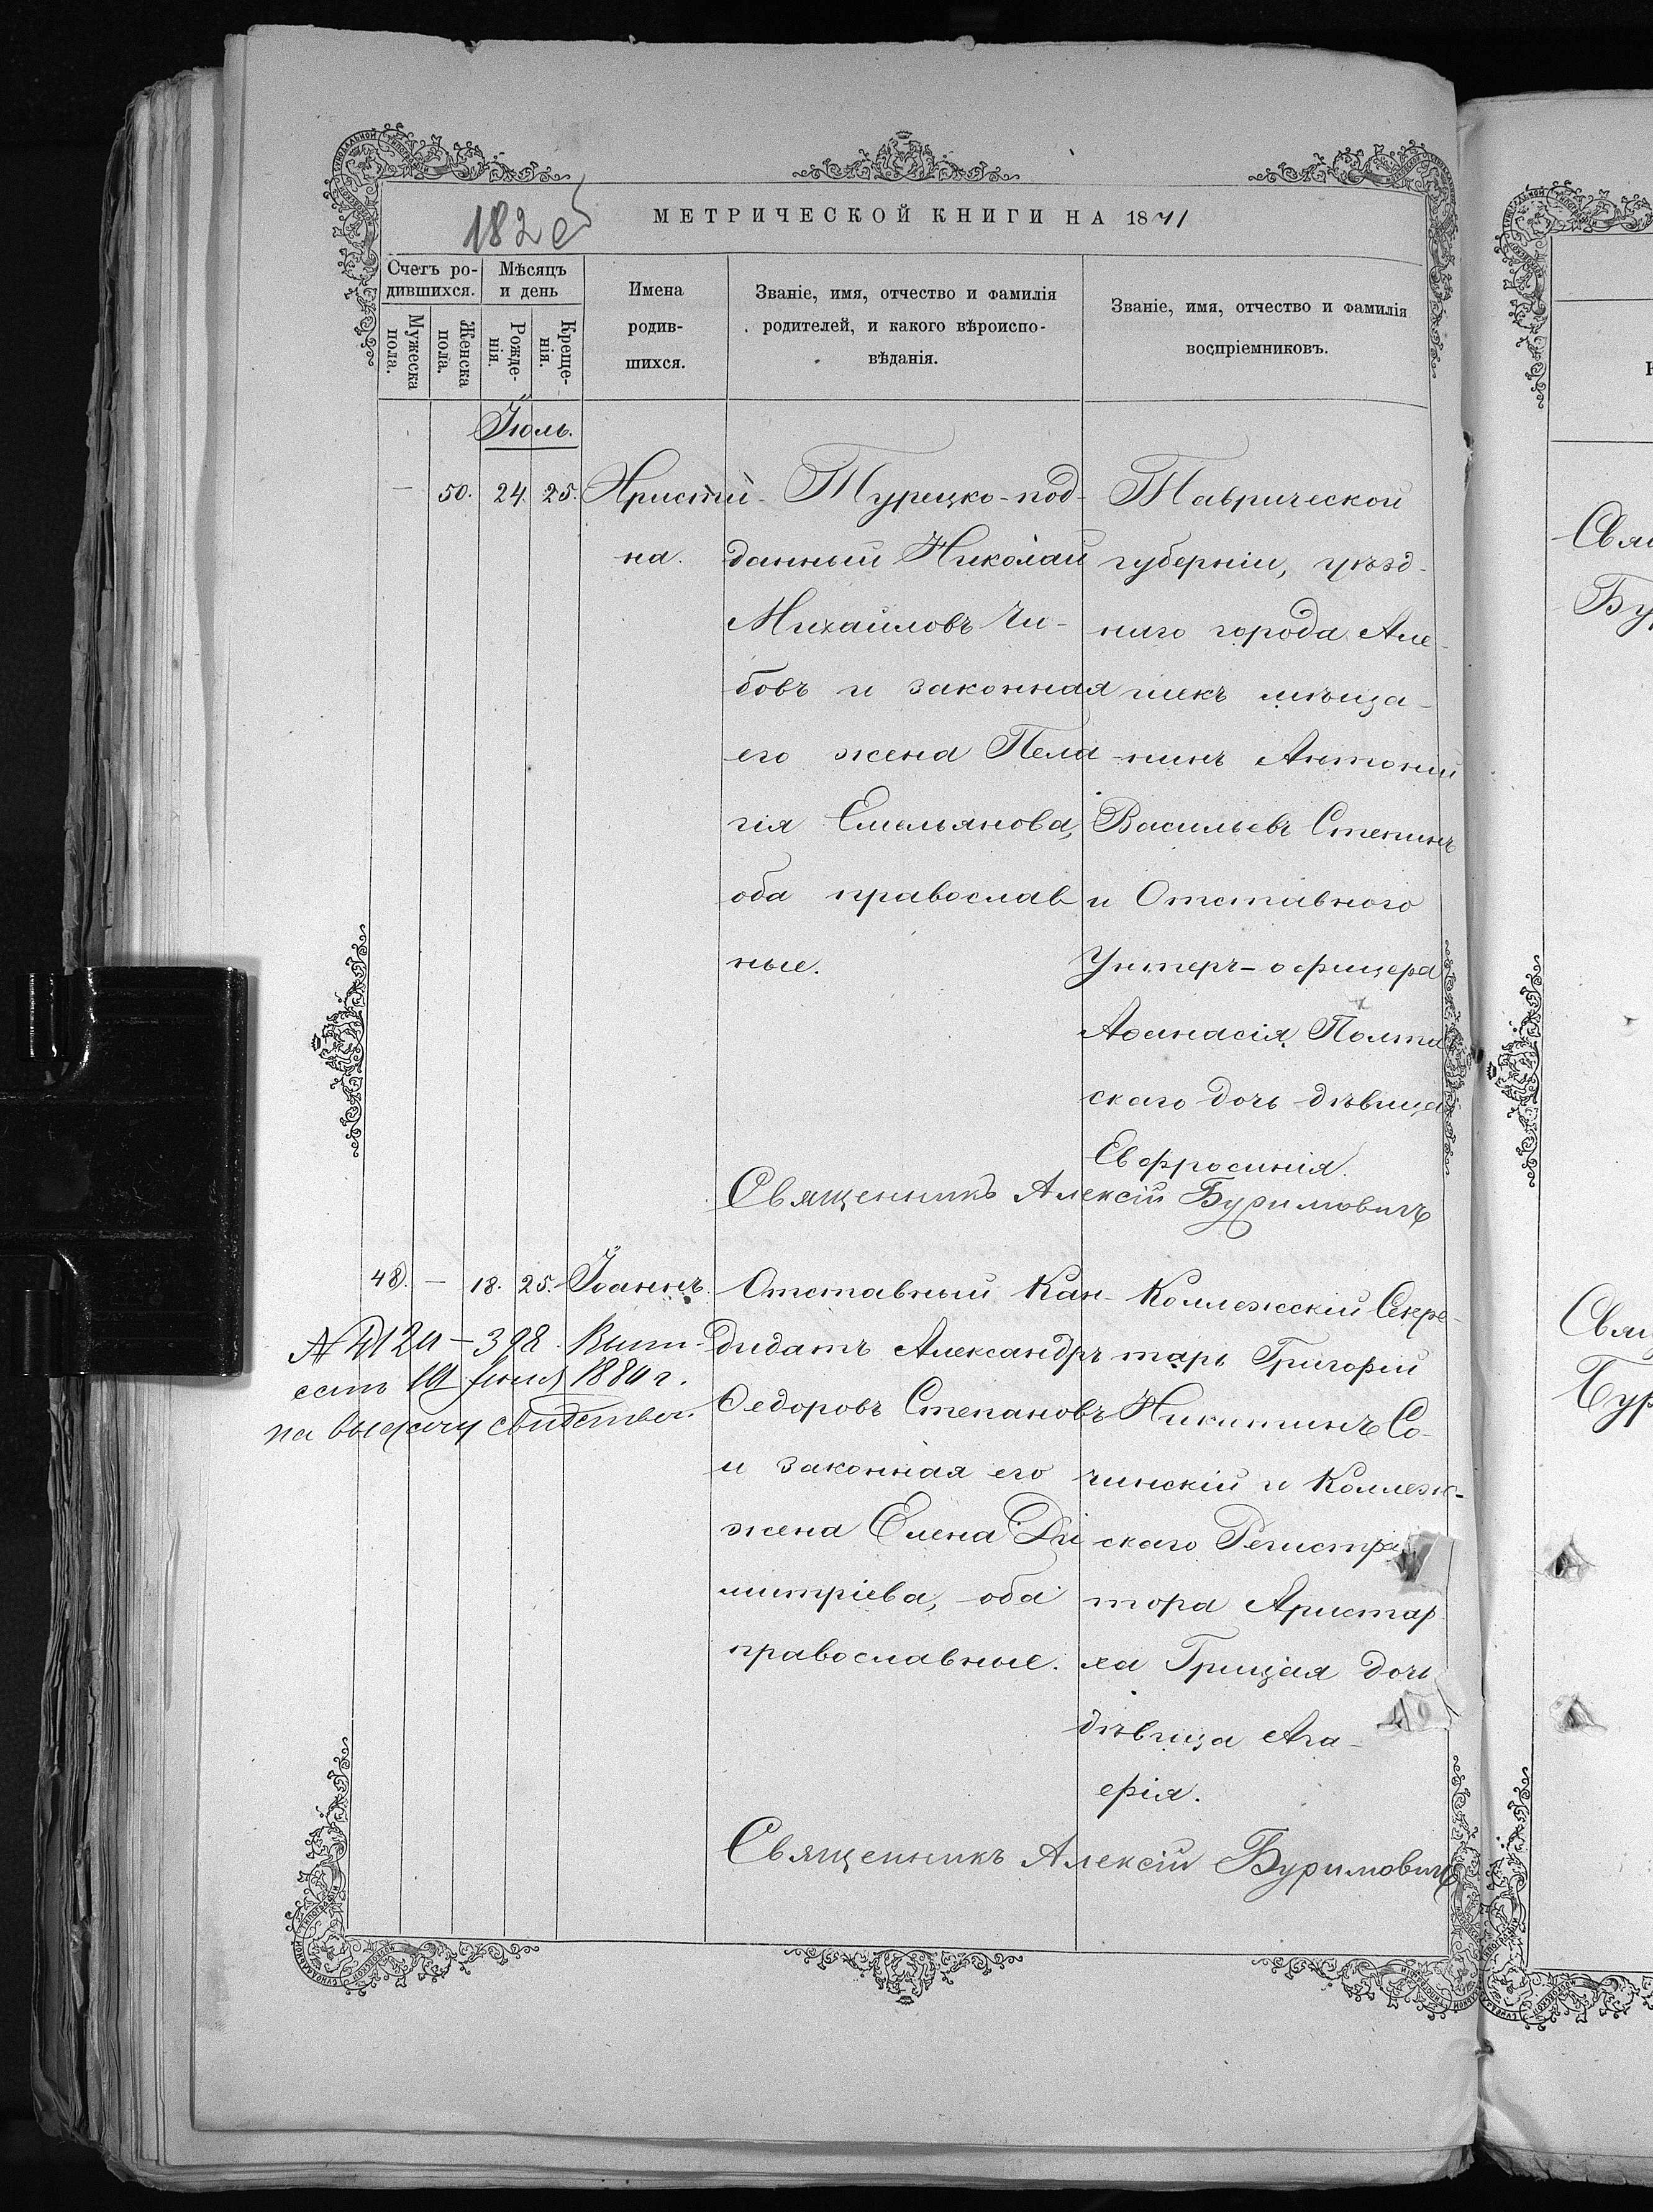 182 об
МЕТРИЧЕСКОЙ КНИГИ НА 1871
Счетъ ро-
дившихся.
Мѣсяцъ
и день
Мужеска
пола.
Женска
пола.
Рожде-
нія.
Креще-
нія.
Имена
родив-
шихся.
Званіе, имя, отчество и фамилія
родителей, и какого вѣроиспо-
вѣданія.
Званіе, имя, отчество и фамилія
воспріемниковъ.
Іюль.
— 50. 24. 25.
Христи-
на.
Турецко-под-
данный Николай
Михайловъ Чи-
бовъ и законная
его жена Пела
гія Емельянова,
оба православ
ные.
Таврической
губерніи, уѣзд-
наго города Але-
шекъ мѣща-
нинъ Антоній
Васильевъ Степинъ
и Отставного
Унтеръ-офицера
Аѳанасія Полта
скаго дочь дѣвица
Евфросинія.
Священникъ Алексій Буримовичъ
48. — 18. 25.
Іоаннъ.
Отставный Кан-
дидатъ Александръ
Ѳедоровъ Степановъ
и законная его
жена Елена Ди
митріева, оба
православные.
Коллежскій Секре-
тарь Григорій
Никитинъ Со-
чинскій и Коллеж-
скаго Регистра
тора Аристар
ха Грицая дочь
дѣвица Ага-
ѳія.
398
1884 г.
на выдачу свидетельст.
Священникъ Алексій Буримовичъ
Свящ
Бур